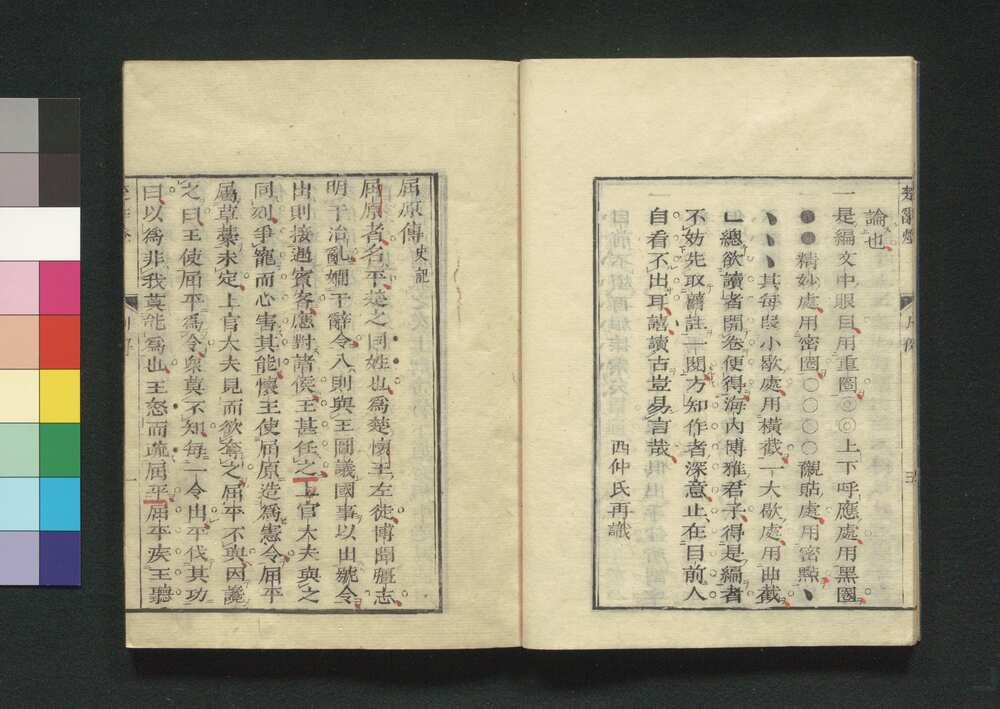 論也
一是編文中眼目用重圈◎◎上下呼應處用黑圈
●●精妙處用密圈○○○○襯貼處用密點丶
丶丶丶其每段小歇處用橫截一大歇處用曲截
乚總欲讀者開卷便得海內博雅君子得是編者
不妨先取舊註一閱方知作者深意止在目前人
自看不出耳噫讀古豈易言哉
西仲氏再識
屈原傳 史記
屈原者名平楚之同姓也為楚懷王左徒博聞彊志
明于治亂嫻于辭令入則與王圖議國事以出號令
出則接遇賓客應對諸侯王甚任之上官大夫與之
同列爭寵而心害其能懷王使屈原造為憲令屈平
屬草藁未定上官大夫見而欲奪之屈平不與因讒
之曰王使屈平為令衆莫不知每一令出平伐其功
曰以為非我莫能為也王怒而疏屈平屈平疾王聽